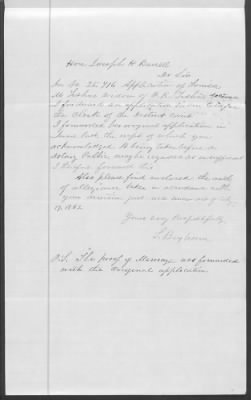 Hon. Joseph H. Barrett
Dr Sir
In No. 26.716 Application of Louisa
M Fisher widow of
I forward an application Sworn to before
the Clerk of the District Court
I forwarded the original application in
June last the rcpt of which you
acknowledged It being taken before a
Notary Public might be regarded as insufficient
I therefore forward this
Also please find enclosed the oath
of allegiance taken in accordance with
your
17. 1862
Yours very Respectfully
P.S. The proof of Marriage was forwarded
with the original application